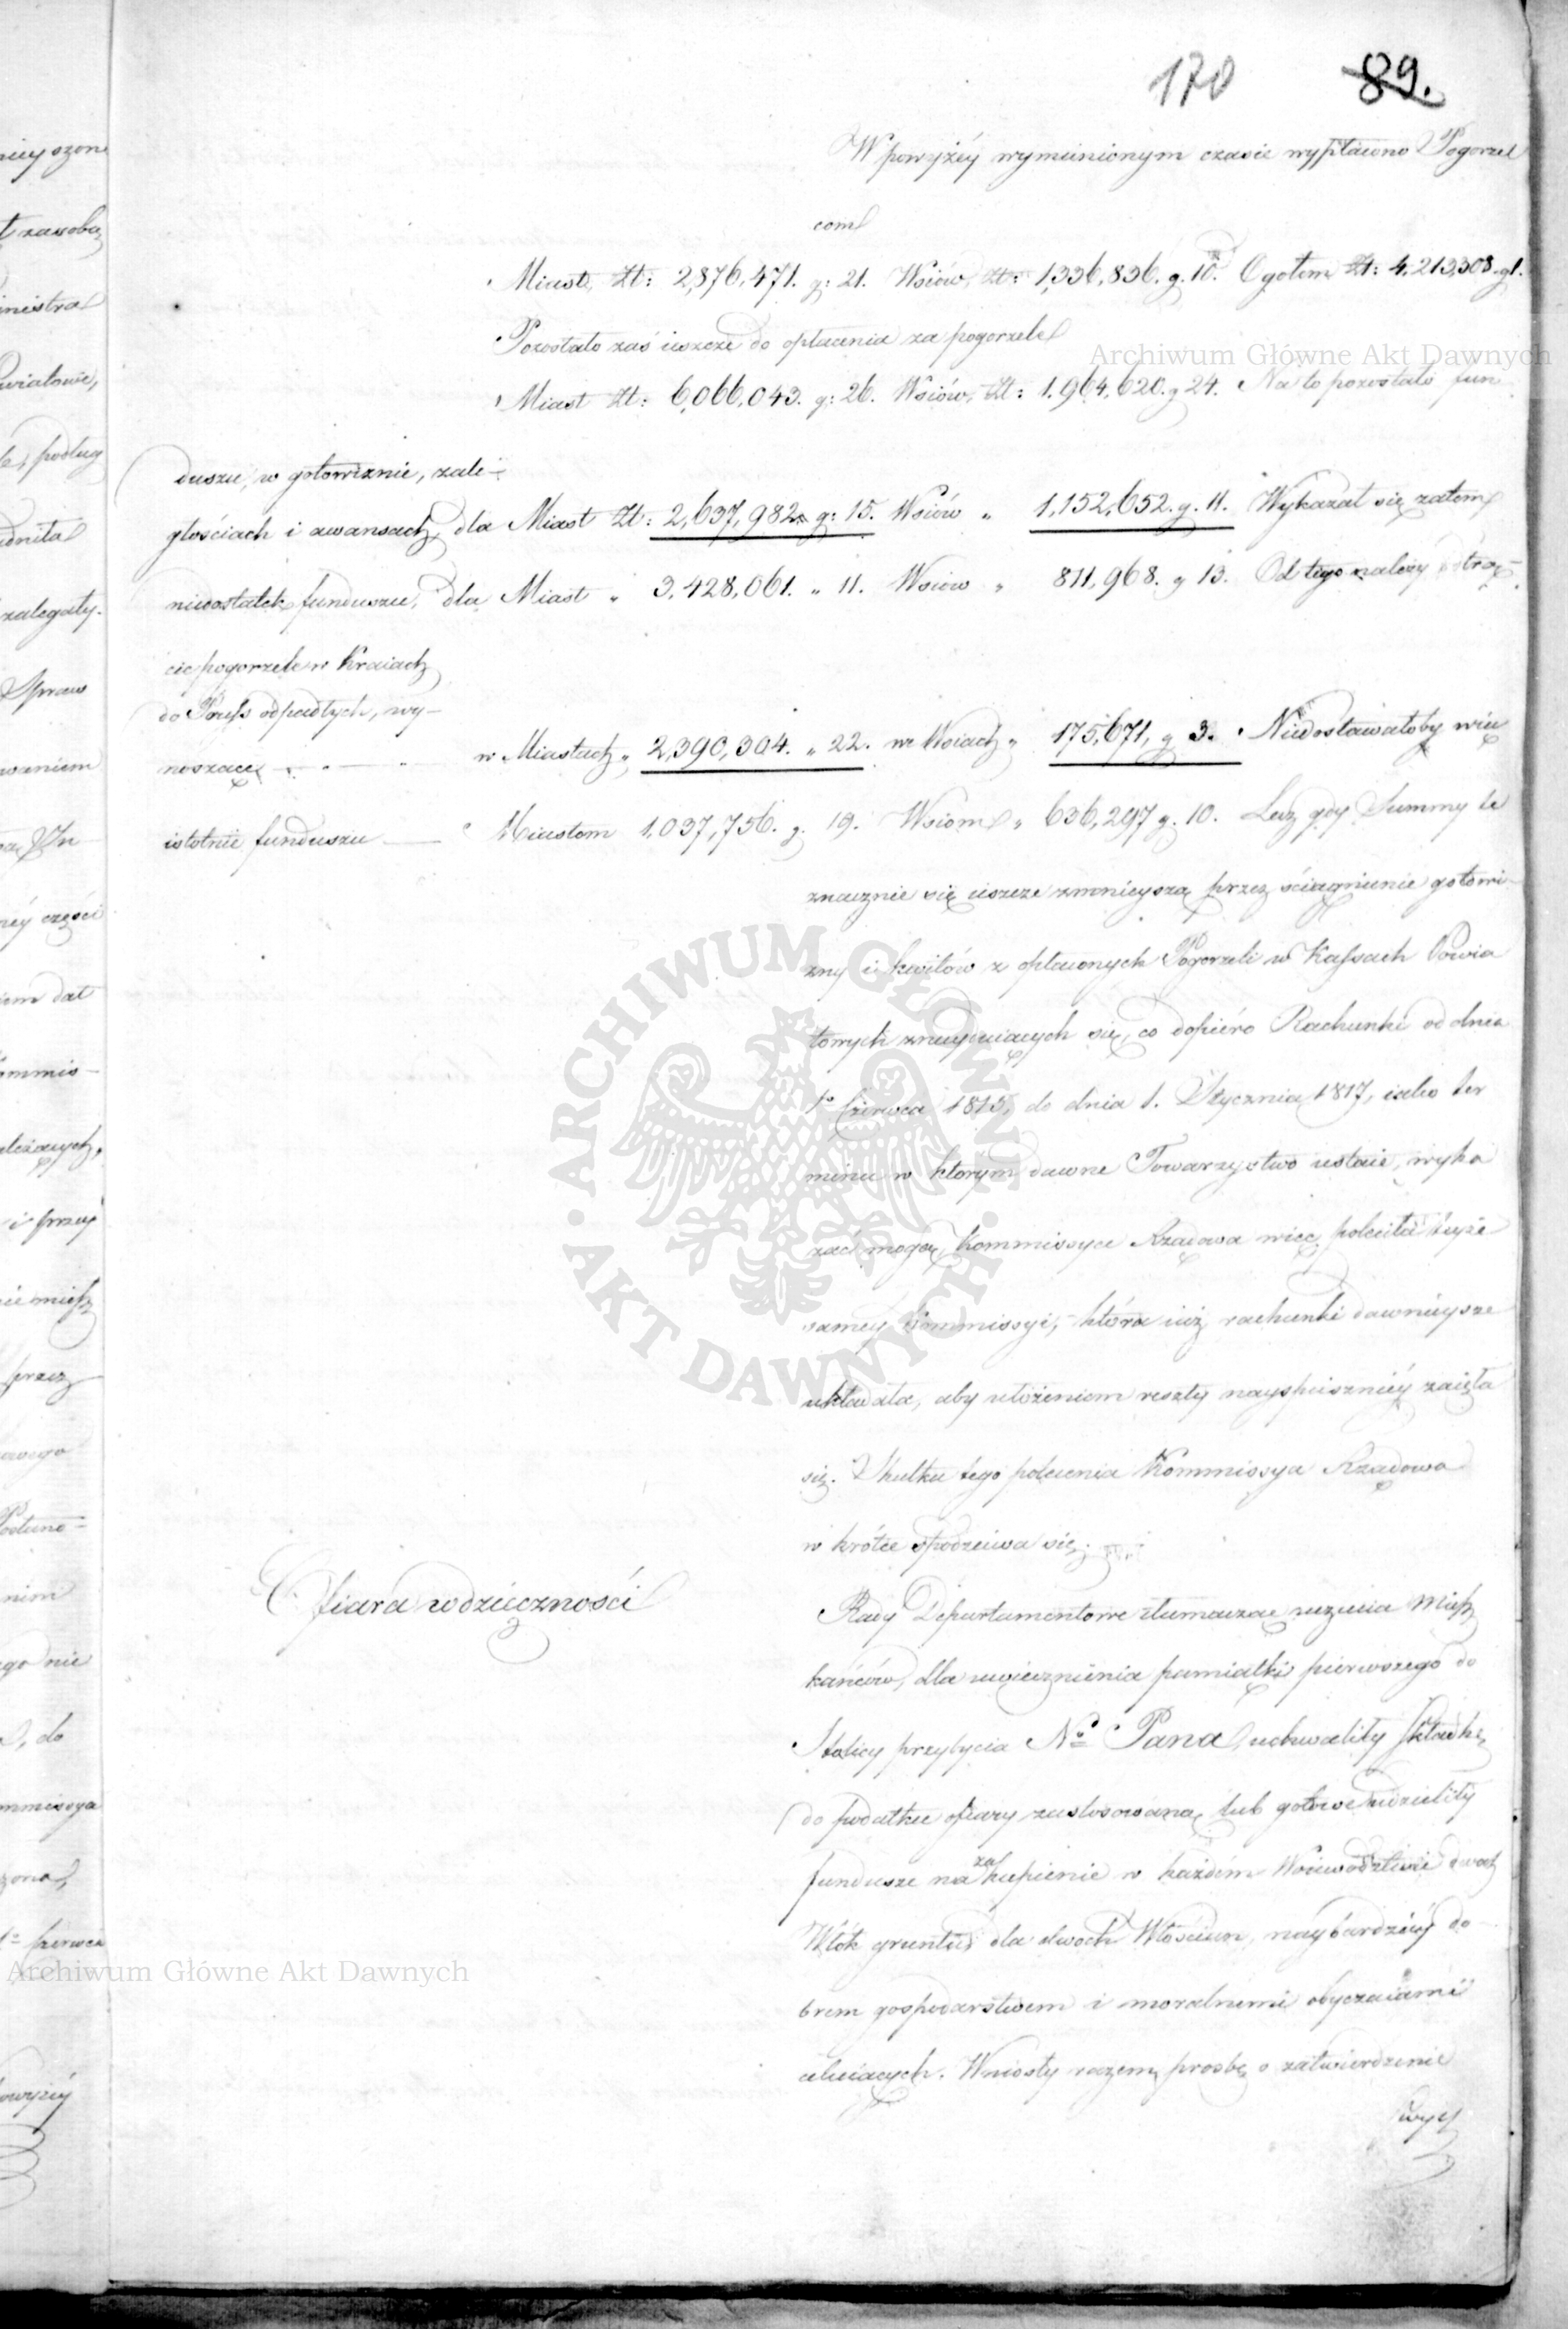 170 89.
W powyżéy wymienionym czasie wypłacono Pogorzel
com
Miast Zł: 2,876,471. g: 21. Wsiów, Zł: 1,336,836. g. 10. Ogołem Zł: 4,213,308. g 1.
Pozostało zaś ieszcze do opłacenia za pogorzele
Archiwum Główne Akt Dawnych
Miast Zł: 6,066,043. g: 26. Wsiów, Zł: 1,964,620. g 24. Na to pozostało fun
duszu, w gotowiznie, zale-
głościach i awansach, dla Miast Zł: 2,637,982 g: 15. Wsiów „ 1,152,652. g. 11. Wykazał się zatem
niedostatek funduszu, dla Miast „ 3,428,061. „ 11. Wsiów „ 811,968. g 13. Od tego należy strą-
cić pogorzele w Kraiach
do Pruss odpadłych, wy-
noszące w Miastach „ 2,390,304. „ 22. we Wsiach „ 175,671, g 3. Niedostawałoby więc
istotnie funduszu Miastom 1,037,756. g. 19. Wsiom „ 636,297 g. 10. Lecz gdy Summy te
znacznie się ieszcze zmnieyszą przez ściągnienie gotowi-
zny i kwitów z opłaconych Pogorzeli w Kassach Powia
towych znayduiących się, co dopiéro Rachunki od dnia
1o Czerwca 1815, do dnia 1. Stycznia 1817, iako ter
minu w którym dawne Towarzystwo ustaie, wyka
zać mogą, Kommissya Rządowa więc poleciła teyże
saméy Kommissyi, która iuż rachunki dawnieysze
układała, aby ułożeniem reszty nayspieszniéy zaięła
się. Skutku tego polecenia Kommissya Rządowa
w krótce spodziewa się.
Ofiara wdzięczności
Rady Departamentowe tłumacząc uczucia Miesz
kańców, dla uwiecznienia pamiątki pierwszego do
Stolicy przybycia No Pana, uchwaliły Składkę
do podatku ofiary zastosowaną, lub gotowe udzieliły
fundusze na zakupienie w każdém Woiewództwie dwóch
Włók gruntu dla dwoch Włościan, naybardziéy do
brem gospodarstwem i moralnemi obyczaiami
celuiących. Wniosły razem prosbę o zatwierdzenie
Archiwum Główne Akt Dawnych
ARCHIWUM GŁÓWNE · AKT DAWNYCH ·